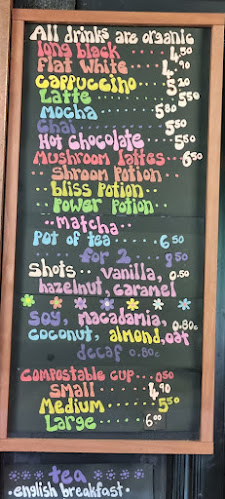 All drinks are organic
long black .... 4.50
Flat White .... 4.90
Cappuccino .... 5.20
Latte ..... 5.50
Mocha .... 5.00
Chai ..... 5.50
Hot Chocolate .... 5.50
Mushroom lattes... 6.50
.. Shroom Potion ..
.. bliss Potion..
.. Power Potion ..
..Matcha..
Pot of tea .... 6.50
.... for 2 .... 8.50
Shots .. vanilla, 0.50
hazelnut, caramel
Soy, Macadamia, 0.80c
coconut, almond,oat
decaf 0.80c
Compostable cup...0.50
Small .... 4.90
Medium .... 5.50
Large ... 6.00
tea
.english breakfast.